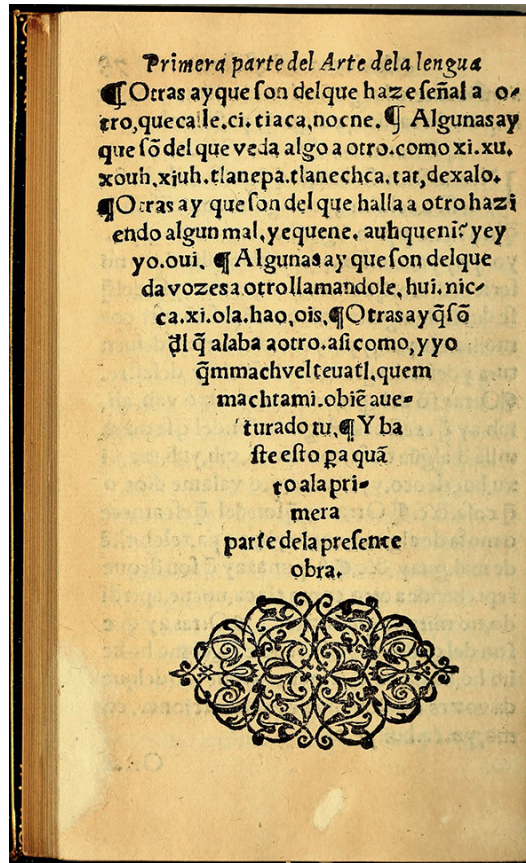 Primera parte del Arte dela lengua
¶ Otras ay que ſon delque haze ſeñal a o-
tro, que calle. ci. tiaca, nocne. ¶ Algunas ay
que ſõ del que veda algo a otro. como xi. xu.
xouh. xiuh. tlanepa. tlanechca. tat, dexalo.
¶ Otras ay que ſon del que halla a otro hazi
endo algun mal, yequene. auhqueni? yey
yo. oui. ¶ Algunas ay que ſon delque
da vozes a otro llamandole, hui. nic-
ca. xi. ola. hao, ois, ¶ Otras ay q̃ ſõ
d̃l q̃ alaba aotro. aſi como, y yo
q̃mmachvelteuatl. quem
machtami. obiẽ aue-
turado tu. ¶ Y ba
ſte eſto pa quã
to ala pri-
mera
parte dela preſente
obra.